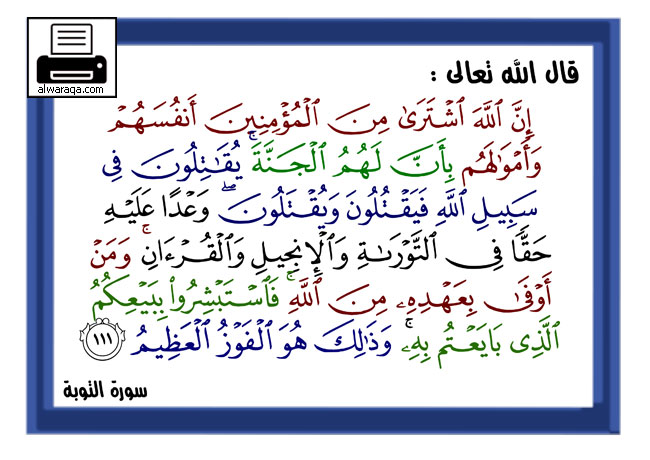 alwaraqa.com
قال الله تعالى :
إِنَّ ٱللَّهَ ٱشْتَرَىٰ مِنَ ٱلْمُؤْمِنِينَ أَنفُسَهُمْ
وَأَمْوَٰلَهُم بِأَنَّ لَهُمُ ٱلْجَنَّةَ ۚ يُقَٰتِلُونَ فِى
سَبِيلِ ٱللَّهِ فَيَقْتُلُونَ وَيُقْتَلُونَ ۖ وَعْدًا عَلَيْهِ
حَقًّا فِى ٱلتَّوْرَىٰةِ وَٱلْإِنجِيلِ وَٱلْقُرْءَانِ ۚ وَمَنْ
أَوْفَىٰ بِعَهْدِهِۦ مِنَ ٱللَّهِ ۚ فَٱسْتَبْشِرُوا۟ بِبَيْعِكُمُ
ٱلَّذِى بَايَعْتُم بِهِۦ ۚ وَذَٰلِكَ هُوَ ٱلْفَوْزُ ٱلْعَظِيمُ ١١١
سورة التوبة